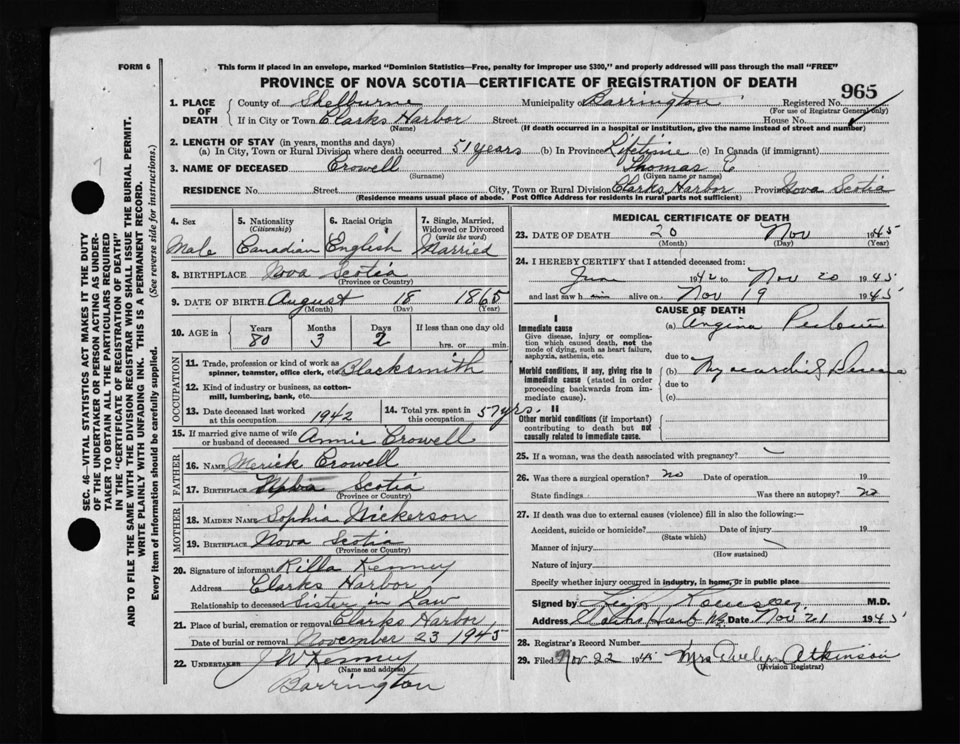 FORM 6
This form if placed in an envelope, marked "Dominion Statistics—Free, penalty for improper use $300," and properly addressed will pass through the mail "FREE"
PROVINCE OF NOVA SCOTIA—CERTIFICATE OF REGISTRATION OF DEATH
965
1. PLACE OF DEATH
County of Shelburne Municipality Barrington Registered No.
(For use of Registrar General only)
If in City or Town Clarks Harbor Street House No.
(Name) (If death occurred in a hospital or institution, give the name instead of street and number)
2. LENGTH OF STAY (in years, months and days)
(a) In City, Town or Rural Division where death occurred 51 years (b) In Province Lifetime (c) In Canada (if immigrant)
3. NAME OF DECEASED Crowell Thomas E
(Surname) (Given name or names)
RESIDENCE No. Street City, Town or Rural Division Clarks Harbor Province Nova Scotia
(Residence means usual place of abode. Post Office Address for residents in rural parts not sufficient)
4. Sex
Male
5. Nationality
(Citizenship)
Canadian
6. Racial Origin
English
7. Single, Married, Widowed or Divorced
(write the word)
Married
8. BIRTHPLACE Nova Scotia
(Province or Country)
9. DATE OF BIRTH August 18 1865
(Month) (Day) (Year)
10. AGE in Years Months Days If less than one day old
80 3 2 hrs. or min.
OCCUPATION
11. Trade, profession or kind of work as spinner, teamster, office clerk, etc. Blacksmith
12. Kind of industry or business, as cotton-mill, lumbering, bank, etc.
13. Date deceased last worked at this occupation 1942
14. Total yrs. spent in this occupation 57 yrs.
15. If married give name of wife or husband of deceased Annie Crowell
FATHER
16. NAME Merick Crowell
17. BIRTHPLACE Nova Scotia
(Province or Country)
MOTHER
18. MAIDEN NAME Sophia Nickerson
19. BIRTHPLACE Nova Scotia
(Province or Country)
20. Signature of informant Rilla Kenney
Address Clarks Harbor
Relationship to deceased Sister in Law
21. Place of burial, cremation or removal Clarks Harbor
Date of burial or removal November 23 1945
22. UNDERTAKER J W Kenney
(Name and address)
Barrington
MEDICAL CERTIFICATE OF DEATH
23. DATE OF DEATH 20 Nov 1945
(Month) (Day) (Year)
24. I HEREBY CERTIFY that I attended deceased from:
1942 to Nov 20 1945
and last saw him alive on Nov 19 1945
CAUSE OF DEATH
I
Immediate cause
Give disease, injury or complication which caused death, not the mode of dying, such as heart failure, asphyxia, asthenia, etc.
(a) Angina
due to
Morbid conditions, if any, giving rise to immediate cause (stated in order proceeding backwards from immediate cause).
(b) Myocardial
due to
(c)
II
Other morbid conditions (if important) contributing to death but not causally related to immediate cause.
25. If a woman, was the death associated with pregnancy?
26. Was there a surgical operation? no Date of operation 19
State findings Was there an autopsy? no
27. If death was due to external causes (violence) fill in also the following:—
Accident, suicide or homicide? Date of injury 19
(State which)
Manner of injury
(How sustained)
Nature of injury
Specify whether injury occurred in industry, in home, or in public place
Signed by M.D.
Address Date Nov 21 1945
28. Registrar's Record Number
29. Filed Nov. 22 1945 Mrs Atkinson
(Division Registrar)
SEC. 46—VITAL STATISTICS ACT MAKES IT THE DUTY
OF THE UNDERTAKER OR PERSON ACTING AS UNDER-
TAKER TO OBTAIN ALL THE PARTICULARS REQUIRED
IN THE "CERTIFICATE OF REGISTRATION OF DEATH"
AND TO FILE THE SAME WITH THE DIVISION REGISTRAR WHO SHALL ISSUE THE BURIAL PERMIT.
WRITE PLAINLY WITH UNFADING INK. THIS IS A PERMANENT RECORD.
Every item of information should be carefully supplied. (See reverse side for instructions.)